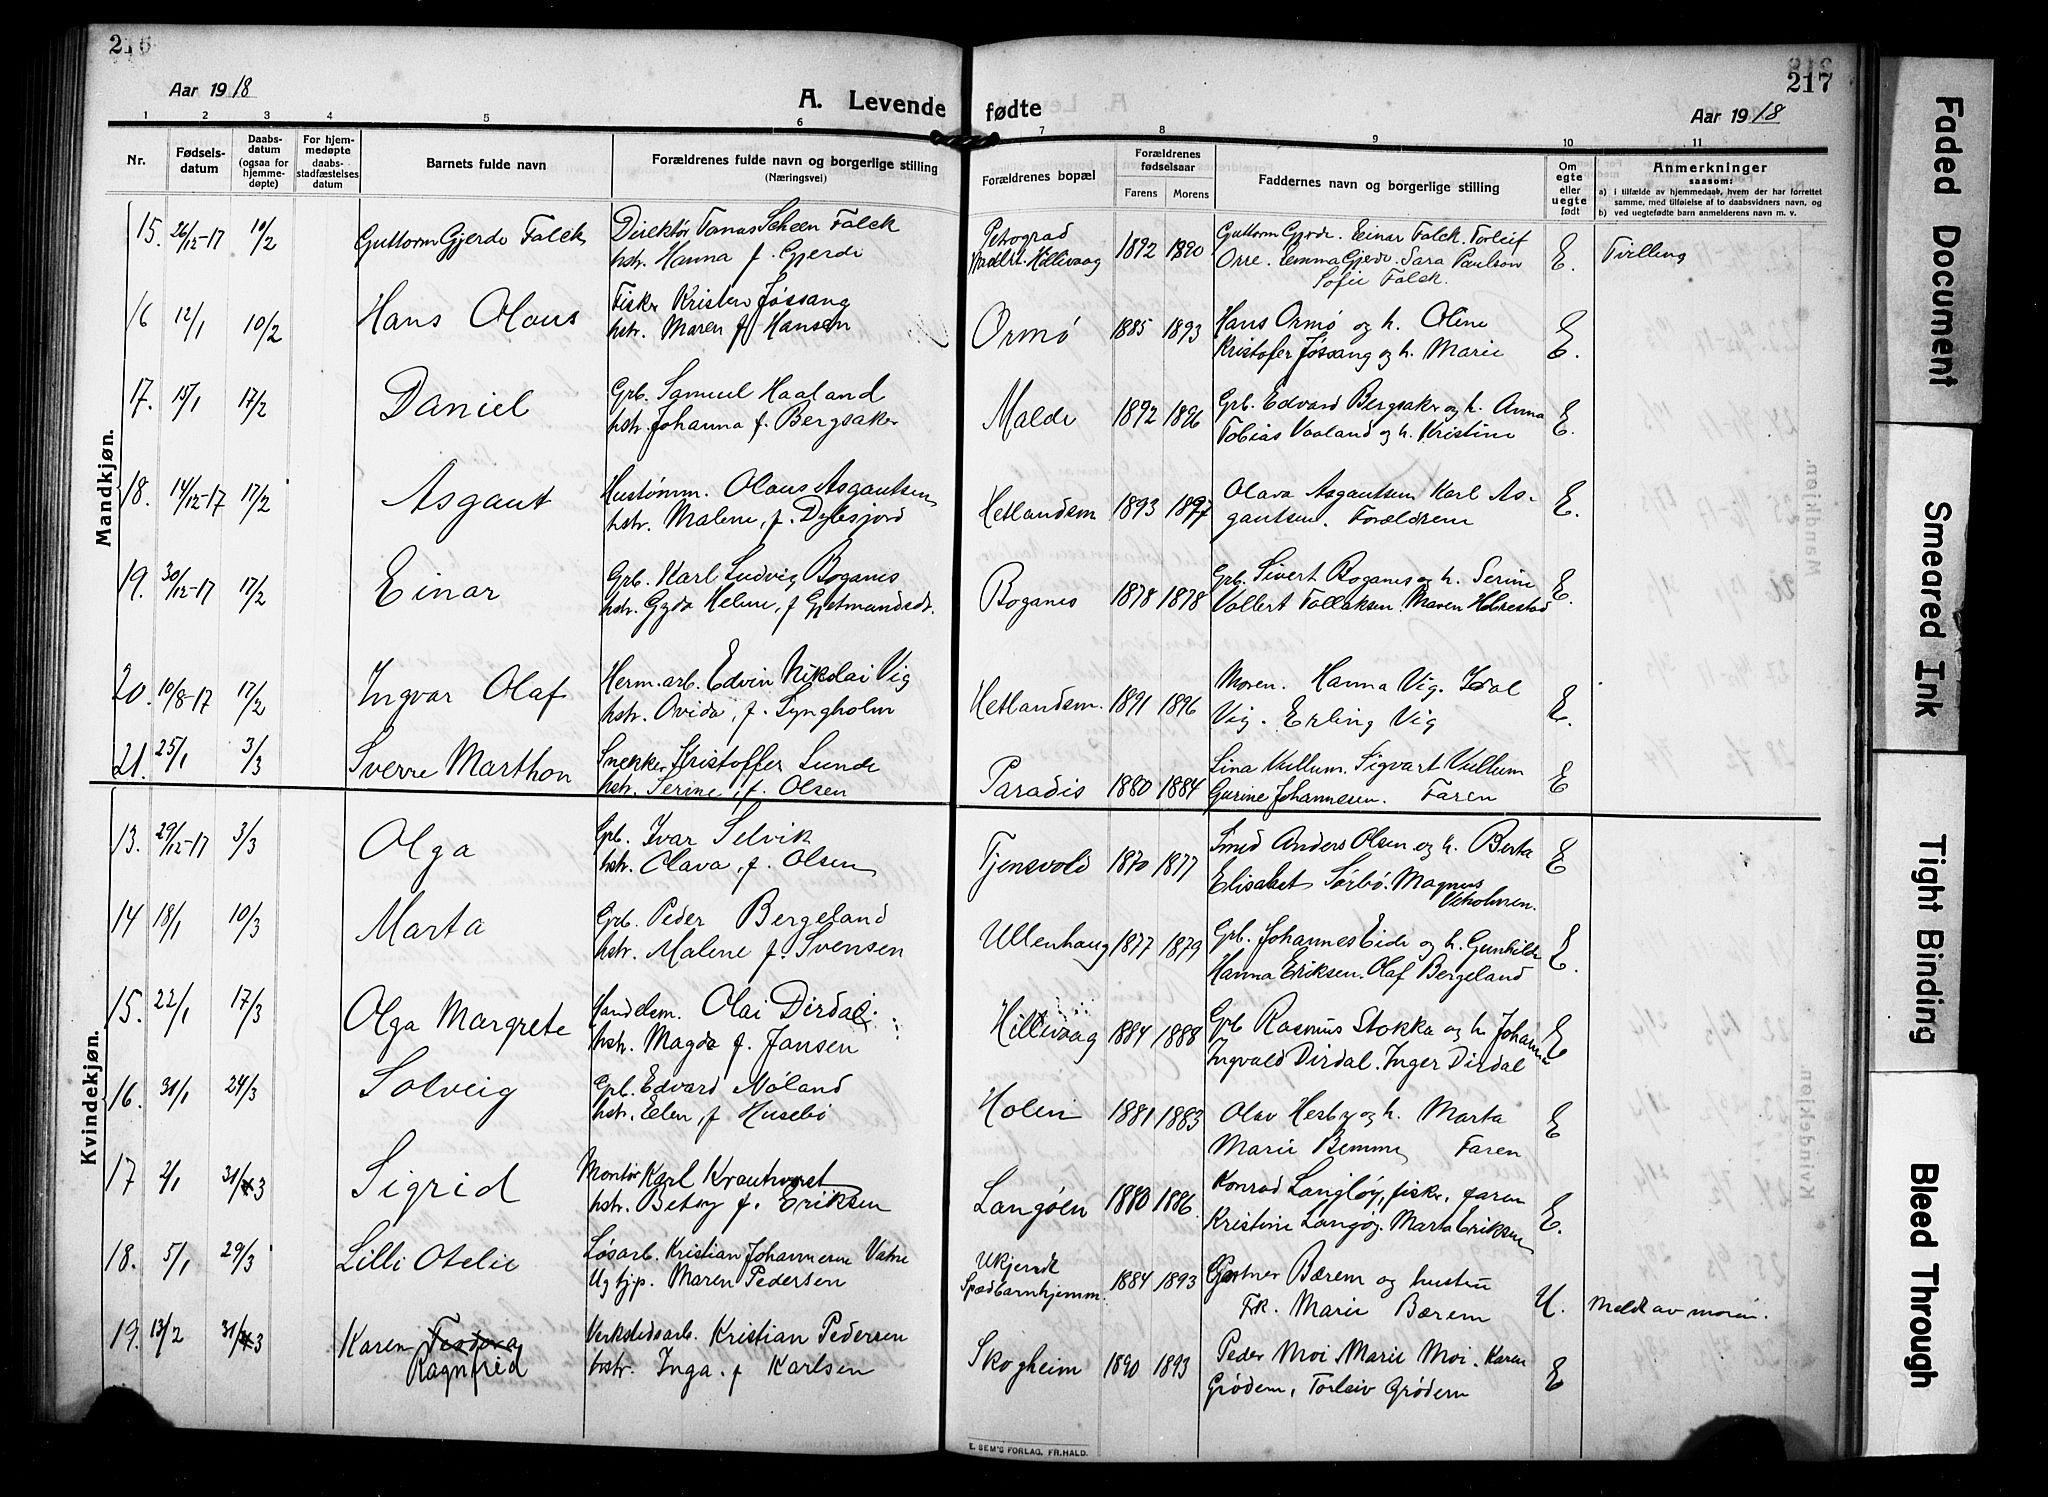 216
Aar 1918
A. Levende
fødte
217
Aar 1918
1 2 3 4 5 6 7 8 9 10 11
Nr.
Fødsels-
datum
Daabs-
datum
(ogsaa for
hjemme-
døpte)
For hjem-
medøpte
daabs-
stadfæstelses
datum
Barnets fulde navn
Forældrenes fulde navn og borgerlige stilling
(Næringsvei)
Forældrenes bopæl
Forældrenes
fødselsaar
Farens Morens
Faddernes navn og borgerlige stilling
Om
egte
eller
uegte
født
Anmerkninger
saasom:
a) i tilfælde av hjemmedaab, hvem der har forrettet
samme, med tilføielse af to daabsvidners navn, og
b) ved uegtefødte barn anmelderens navn m. v.
Mandkjøn.
15. 26/12-17 10/2 Guttorm Gjerde Falck Direktør Tomas Scheen Falck Petrograd 1892 1890 Guttorm Gjerde. Einar Falck. Torleif E. Tvilling
hstr. Hanna f. Gjerde Hillevaag Orre. Emma Gjerde. Sara Paulson
Sofie Falck.
16 12/1 10/2 Hans Olaus Fisker Kristen Jøssang Ormø 1885 1893 Hans Ormø og h. Oline E.
hstr. Maren f. Hansen Kristofer Jøssang og h. Marie
17. 15/1 17/2 Daniel Grb. Samuel Haaland Malde 1892 1896 Grb. Edvard Bergsaker og h. Anna E.
hstr. Johanna f. Bergsaker Tobias Vaaland og h. Kristine
18. 14/12-17 17/2 Asgaut Hustømm. Olaus Asgautsen Hetlandsm 1893 1897 Olava Asgautsen Karl As- E.
hstr. Malene, f. gautsen. Forældrene
19. 30/12-17 17/2 Einar Grb. Karl Ludvig Boganes Boganes 1878 1878 Grb. Sivert Boganes og h. Serine E.
hstr. Gyda Helene, f Gjetmundsdr. Vollert Tollaksen. Maren
20. 10/8-17 17/2 Ingvar Olaf Herm.arb. Edvin Nikolai Vig Hetlandsm. 1891 1896 Moren. Hanna Vig. Idal E.
hstr. Ovida, f. Lyngholm Vig. Erling Vig
21. 25/1 3/3 Sverre Marthon Snekker Kristoffer Lunde Paradis 1880 1884 Lina Vullum. Sigvart Vullum E
hstr. Serine, f. Olsen Gurine Johannesen. Faren
Kvindekjøn.
13. 29/12-17 3/3 Olga Grb. Ivar Selvik Tjensvold 1870 1877 Smed Anders Olsen og h. Berta E
hstr. Olava, f. Olsen Elisabet Sørbø. Magnus
Veholmen.
14 18/1 10/3 Marta Grb. Peder Bergeland Ullenhaug 1877 1879 Grb. Johannes Eide og h. Gunhilde E.
hstr. Malene f. Svensen Hanna Eriksen. Olaf Bergeland
15. 22/1 17/3 Olga Margrete Handelsm. Olai Dirdal Hillevaag 1884 1888 Grb Rasmus Stokka og h. Johanne E
hstr. Magda f. Jansen Ingvald Dirdal. Inger Dirdal
16. 31/1 24/3 Solveig Grb. Edvard Møland Holen 1881 1883 Olav Hesby og h. Marta E
hstr. Elen, f Husebø Marie Bemme, Faren
17 2/1 31/3 Sigrid Montør Karl Krauthvest Langøen 1880 1886 Konrad Langløy, fisker, faren E.
hstr. Betsy f. Eriksen Kristine Langøy. Marta Eriksen
18. 5/1 29/3 Lilli Otelie Løsarb. Kristian Johannesen Vatne Ukjendt 1884 1893 Gartner Bærem og hustru U. Meldt av moren.
Ug tjp. Maren Pedersen Spædbarnhjemm. Frk. Marie Bærem
19. 13/2 31/3 Karen Verkstedsarb. Kristian Pedersen Skogheim 1890 1893 Peder Moi Marie Moi. Karen E
Ragnfrid hstr. Inga. f Karlsen Grødem, Torleiv Grødem
E. SEM'S FORLAG, FR.HALD.
Faded Document
Smeared Ink
Tight Binding
Bleed Through